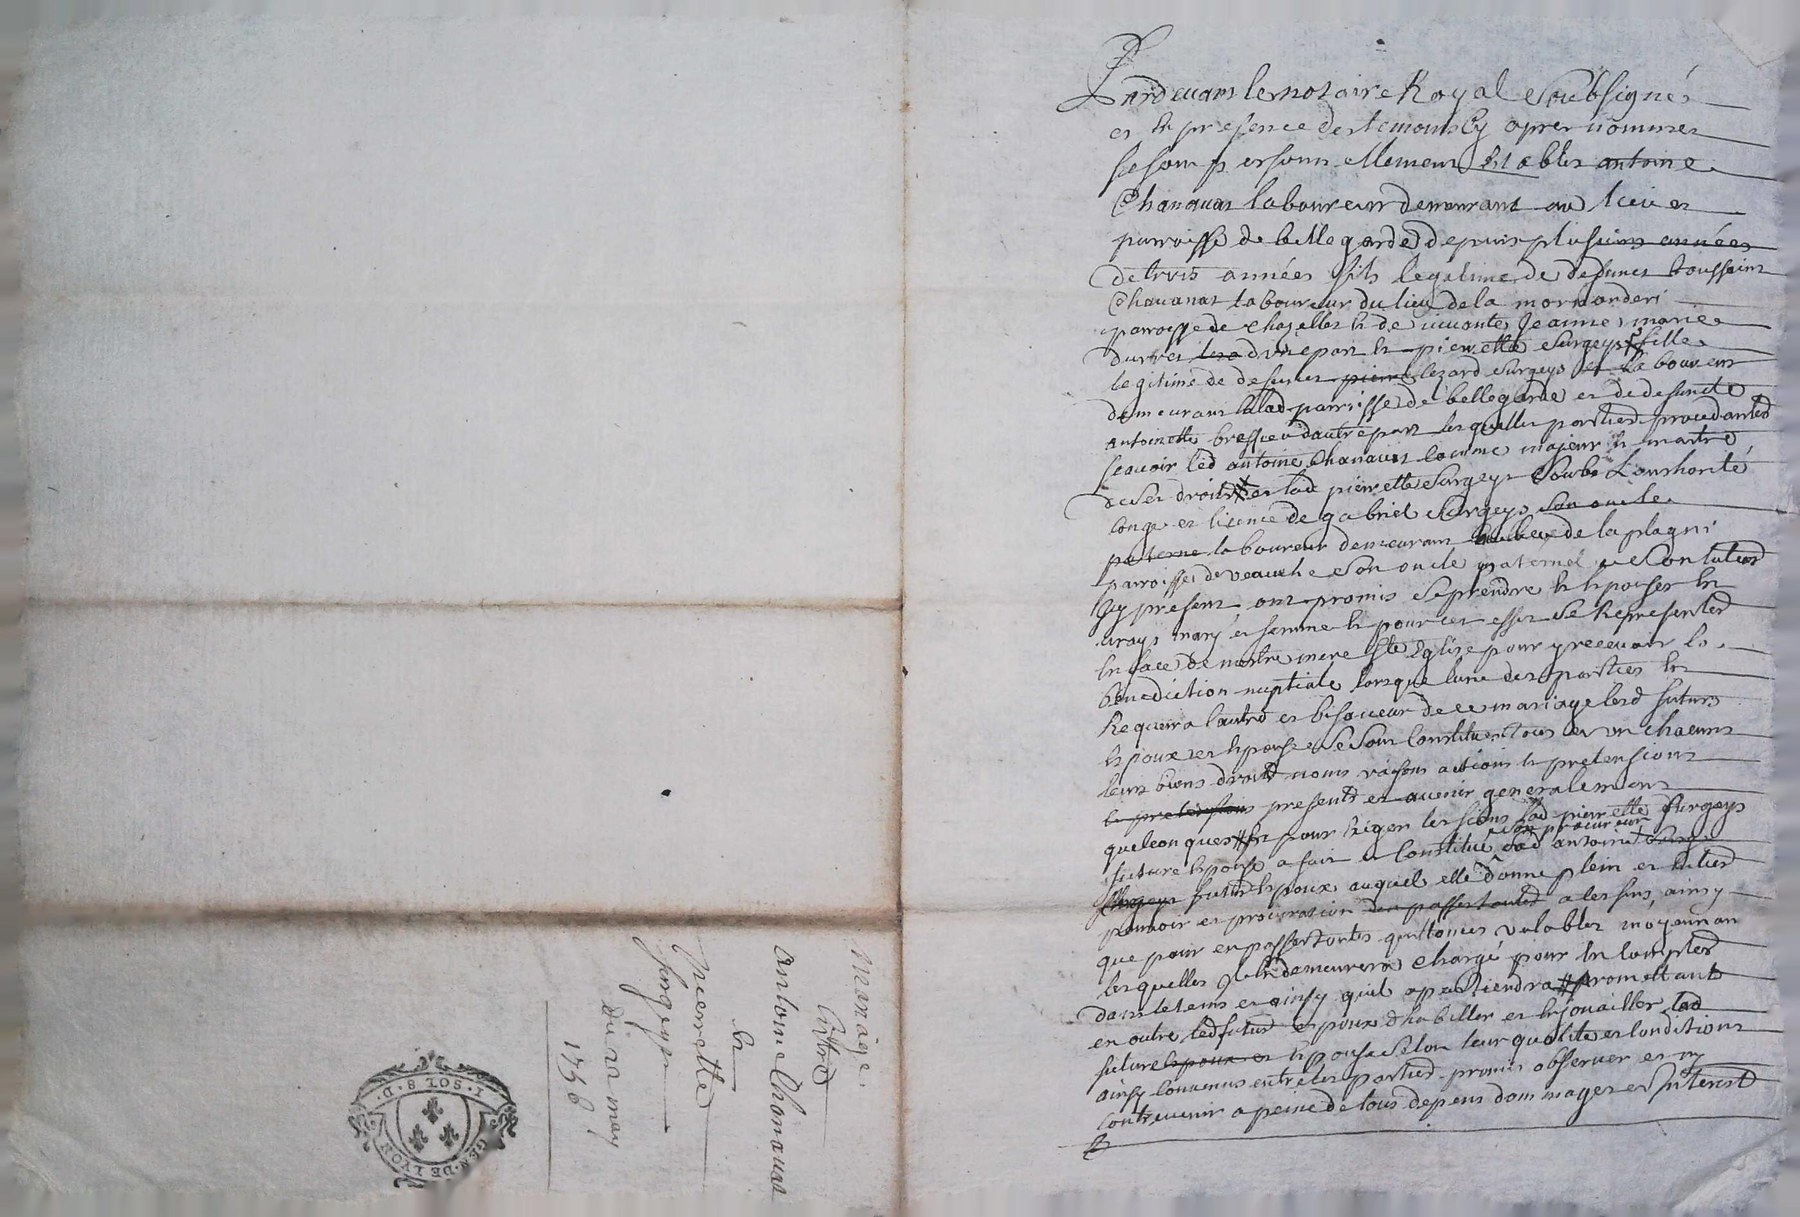 Pardevant le notaire Royal Soubsigné
et en presence des temoins Cy apres nommes
se sont personnellement establis antoine
Chanavat laboureur demeurant au lieu et
parroisse de bellegarde depuis plusieurs années
de trois années fils legitime de defunct toussaint
Chavanat laboureur du lieu de la
parroisse de Chazelles et de vivante Jeanne marie
d'une part et pierrette Surgeys fille
legitime de defunct pierre Surgeys laboureur
demeurant lad parroisse de bellegarde et de defuncte
antoinette d'autre part lesquelles parties procedantes
scavoir led antoine Chanavat comme majeur et maitre
de ses droits et lad pierrette Surgeys Soubs L'authorité
conge et licence de gabriel Surgeys son oncle
paterne laboureur demeurant au lieu de la plagni
parroisse de veauche son oncle maternel
Cy present ont promis se prendre et epouser en
vrays mary et femme et pour cet effet se Representer
en face de nostre mere ste Eglise pour y recevoir la
benediction nuptiale lorsque l'une des parties en
Requerra l'autre et en faveur de ce mariage lesd futurs
Epoux et Epouse se sont Constitué tous et un chacuns
leurs biens droits noms raisons actions et pretensions
et pretensions presents et avenir generalement
quelconques et pour exiger les siens lad pierrette Surgeys
future epouse a fait et Constitué son procureur led antoine
Surgeys futur Epoux auquel elle donne plein et entier
pouvoir et procuration den passer toutes a ses fins ainsy
que pour en passer toutes quittances valables moyennan
lesquelles il en demeurera chargé pour en compter
dans le tems et ainsy quil apartiendra promettant
en outre led futur epoux d'habiller et enjouailler lad
future epoux et epouse selon leur qualité et conditions
ainsy convenus entre les parties promis observer et ny
contrevenir a peine de tous depens dommages et Interest
Mariage
Entre
antoine Chanavat
Et
pierrette
Surgeys
Du 12 may
1758
1 · SOL 8 · D
GEN · DE LYON